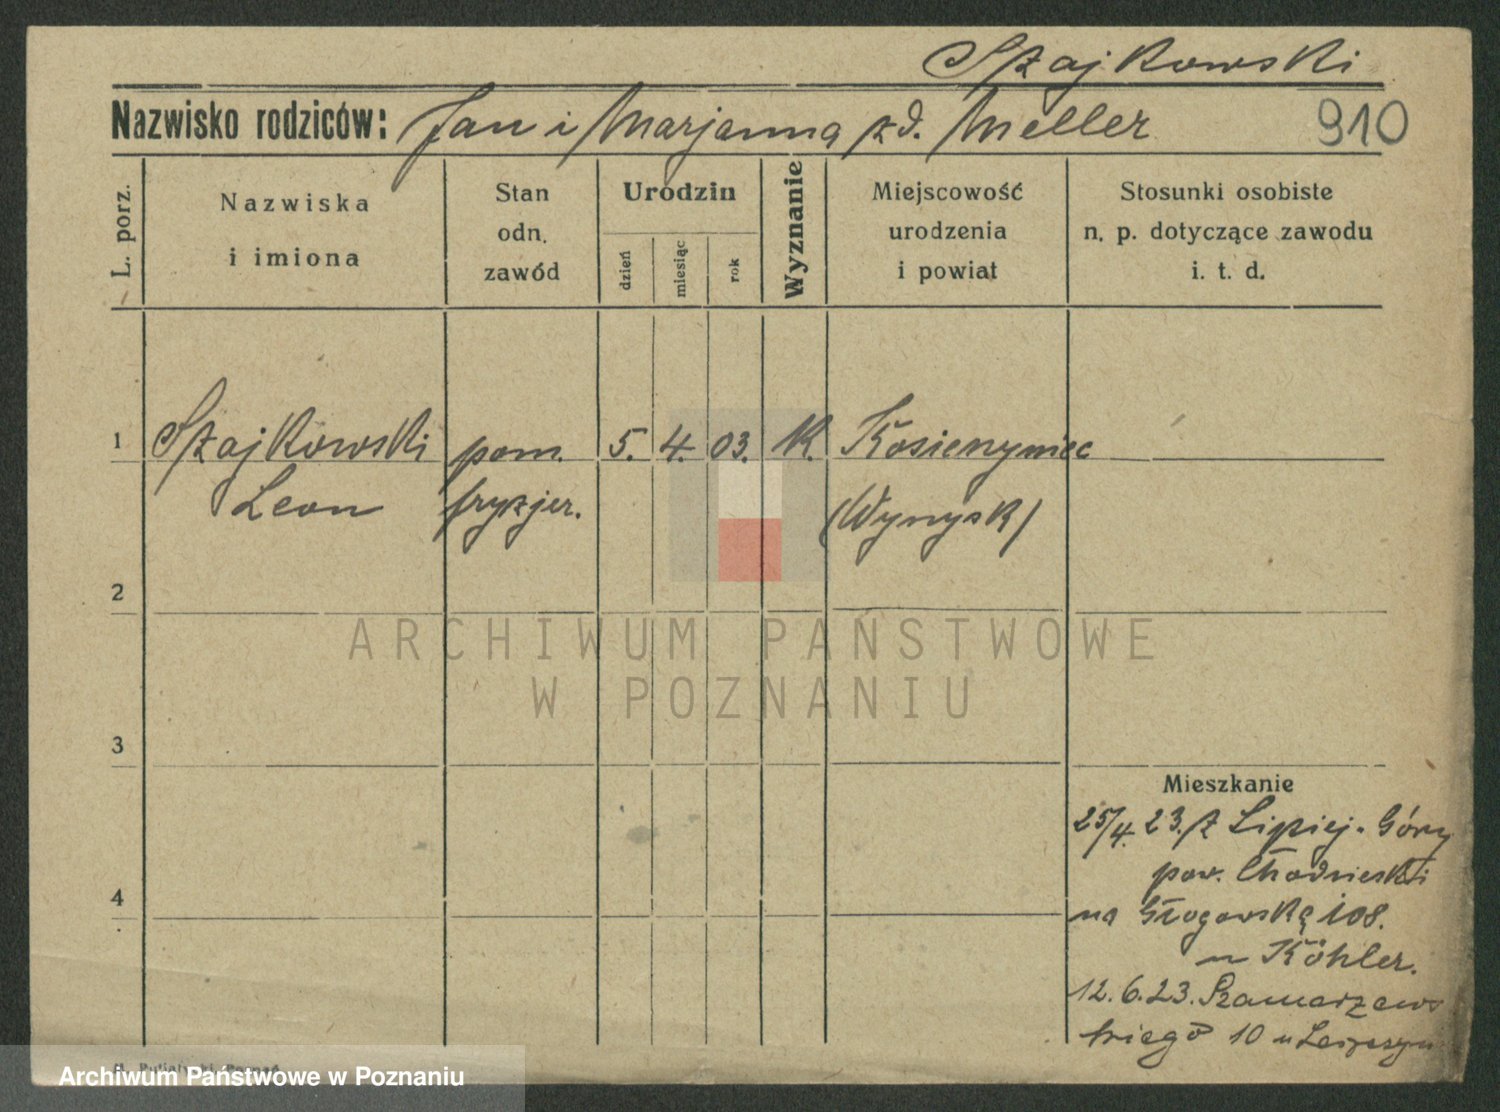 Szajkowski
Nazwisko rodziców: Jan i Marjanna zd. Meller 910
L. porz.
Nazwiska
i imiona
Stan
odn.
zawód
Urodzin
dzień
miesiąc
rok
Wyznanie
Miejscowość
urodzenia
i powiat
Stosunki osobiste
n. p. dotyczące zawodu
i. t. d.
1 Szajkowski pom. 5. 4. 03. K.
Leon fryzjer. (Wyrzysk)
2
ARCHIWUM PAŃSTWOWE
W POZNANIU
3
Mieszkanie
25/4. 23. z Lipiej-Góry
4 pow. Chodzieski
na Głogowską 108.
u Köhler.
12. 6. 23. Szamarzews
kiego 10 u
Archiwum Państwowe w Poznaniu